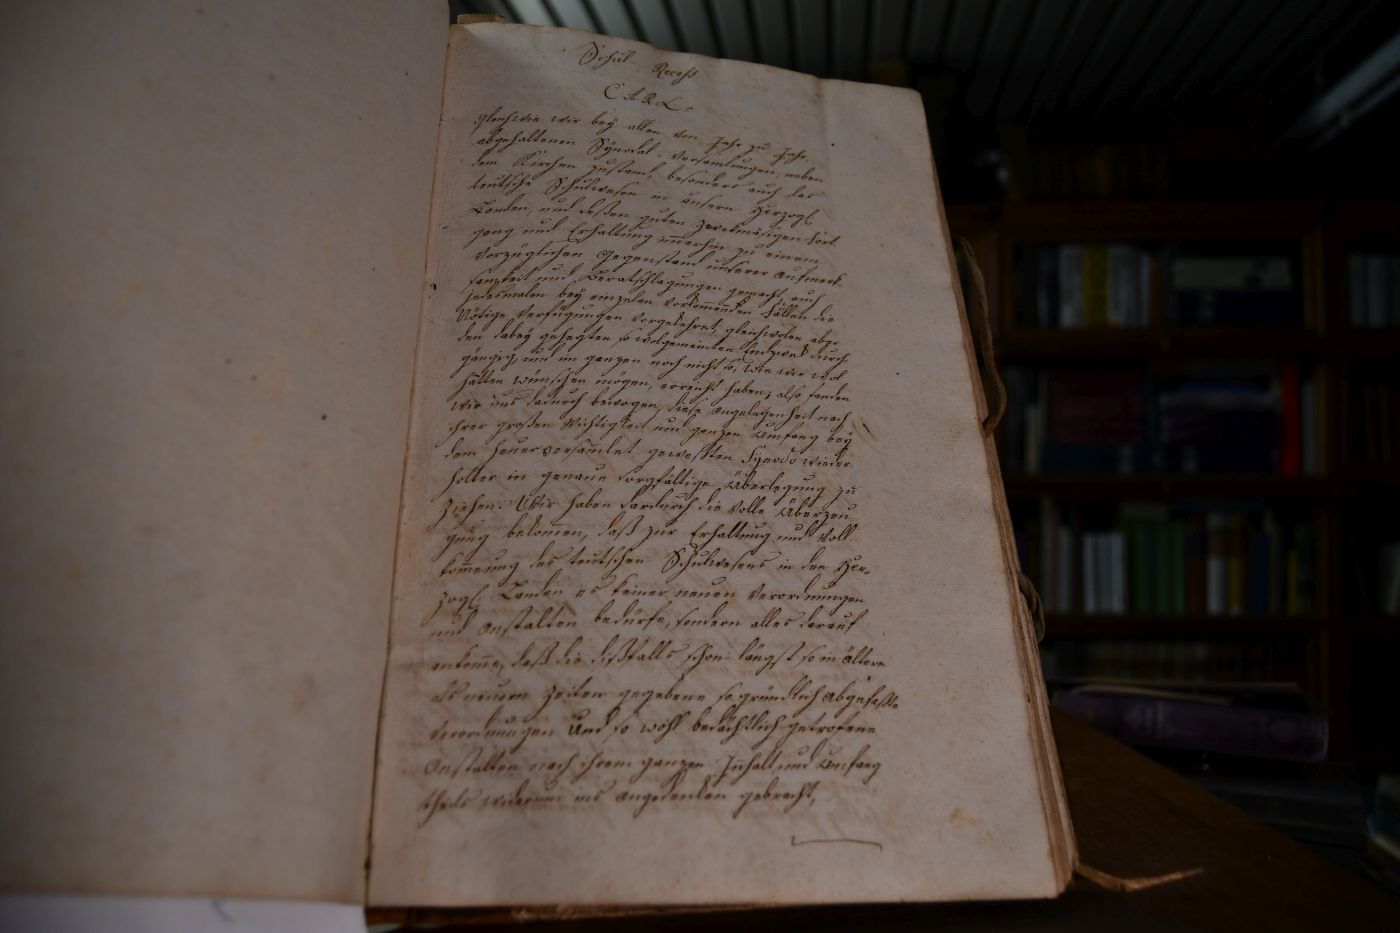 Schul Recess
CARL.
Gleichwie wir bey allen von Jahr zu Jahr
abgehaltenen Sÿnodal-Versamlungen, neben
dem Kirchen zustand, besonders auch das
teutsche Schulwesen in unsern Herzogl.
Landen, und deßen guten zwekmäsigen Fort
gang und Erhaltung immerhin zu einem
Vorzüglichen Gegenstand unserer Aufmerk-
samkeit und Beratschlagungen gemacht, auch
jedesmalen bey einzelen vorkommenden Fällen die
Nötige Verfügungen vorgekehret, gleichwolen aber
den dabey gehegten so wolgemeinten Endzwek durch
gängig, und im ganzen noch nicht so, wie wir wol
hätten wünschen mögen, erreicht haben; also fanden
wir uns dadurch bewogen, diese Angelegenheit nach
ihrer großen Wichtigkeit und ganzen Umfang bey
dem heuer versamlet geweßten Sÿnodo wieder-
holter in genaue sorgfältige Überlegung zu
Ziehen. Wir haben dardurch die volle Überzeu-
gung bekommen, daß zur Erhaltung und Voll
kommenung des teutschen Schulwesens in den Her-
zogl. Landen es keiner neuen Verordnungen
und Anstalten bedürfe, sondern alles darauf
ankomme, daß die dißfalls schon längst so in ältern
als neuern Zeiten gegebene so gründlich abgefaßte
Verordnungen Und so wohl bedächtlich getrofene
Anstalten nach ihrem ganzen Innhalt und Umfang
theils widerum ins Angedenken gebracht,